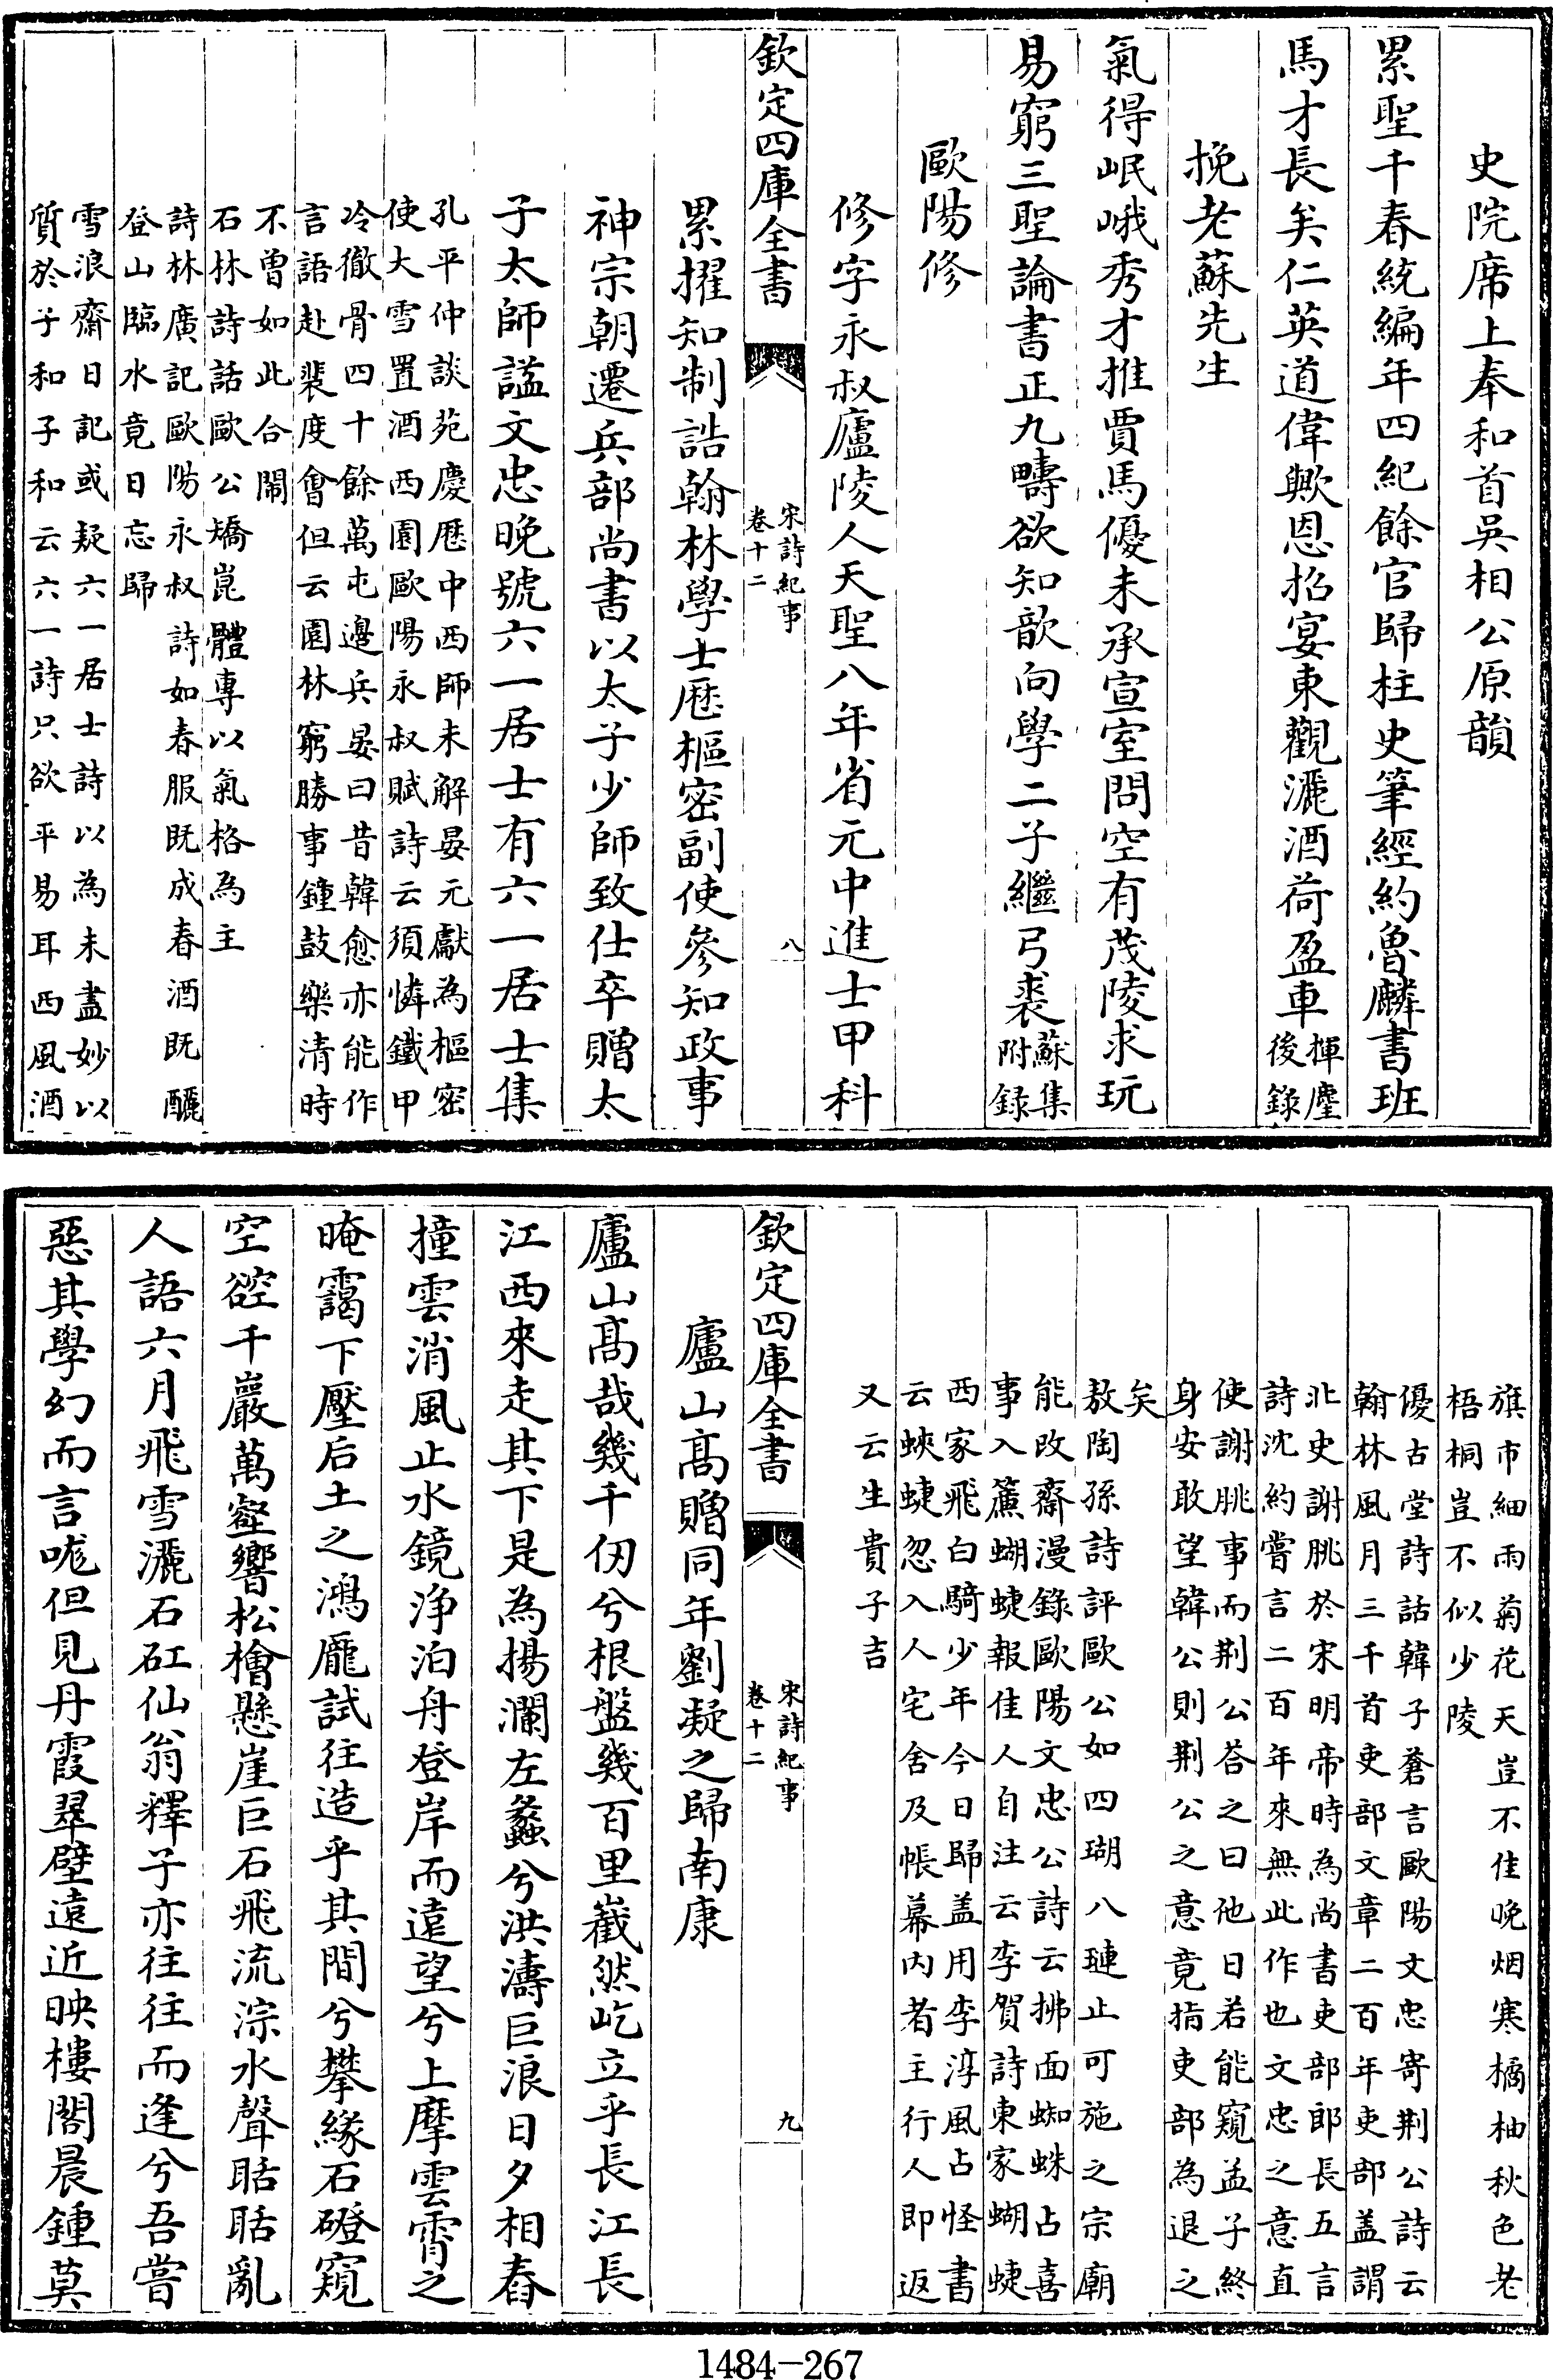 史院席上奉和首吳相公原韻
累聖千春統編年四紀餘官歸柱史筆經約魯麟書班
馬才長矣仁英道偉歟恩招宴東觀灑酒荷盈車揮麈
後錄
挽老蘇先生
氣得岷峨秀才推賈馬優未承宣室問空有茂陵求玩
易窮三聖論書正九疇欲知歆向學二子繼弓裘蘇集
附錄
歐陽修
修字永叔廬陵人天聖八年省元中進士甲科
欽定四庫全書
宋詩紀事
卷十二
八
累擢知制誥翰林學士歷樞密副使參知政事
神宗朝遷兵部尚書以太子少師致仕卒贈太
子太師諡文忠晚號六一居士有六一居士集
孔平仲談苑慶歷中西師未解晏元獻為樞密
使大雪置酒西園歐陽永叔賦詩云須憐鐵甲
冷徹骨四十餘萬屯邊兵晏曰昔韓愈亦能作
言語赴裴度會但云園林窮勝事鐘鼓樂清時
不曾如此合鬧
石林詩話歐公矯崑體專以氣格為主
詩林廣記歐陽永叔詩如春服既成春酒既釃
登山臨水竟日忘歸
雪浪齋日記或疑六一居士詩以為未盡妙以
質於子和子和云六一詩只欲平易耳西風酒
旗市細雨菊花天豈不佳晚烟寒橘柚秋色老
梧桐豈不似少陵
優古堂詩話韓子蒼言歐陽文忠寄荆公詩云
翰林風月三千首吏部文章二百年吏部盖謂
北史謝朓於宋明帝時為尚書吏部郎長五言
詩沈約嘗言二百年來無此作也文忠之意直
使謝朓事而荆公荅之曰他日若能窺孟子終
身安敢望韓公則荆公之意竟指吏部為退之
矣
敖陶孫詩評歐公如四瑚八璉止可施之宗廟
能改齋漫錄歐陽文忠公詩云拂面蜘蛛占喜
事入簾蝴蜨報佳人自注云李賀詩東家蝴蜨
西家飛白騎少年今日歸盖用李淳風占怪書
云蛺蜨忽入人宅舍及帳幕內者主行人即返
又云生貴子吉
欽定四庫全書
宋詩紀事
卷十二
九
廬山髙贈同年劉凝之歸南康
廬山髙哉幾千仞兮根盤幾百里巀然屹立乎長江長
江西來走其下是為揚瀾左蠡兮洪濤巨浪日夕相舂
撞雲消風止水鏡淨泊舟登岸而遠望兮上摩雲霄之
晻靄下壓后土之鴻厖試往造乎其間兮攀緣石磴窺
空谾千巖萬壑響松檜懸崖巨石飛流淙水聲聒聒亂
人語六月飛雪灑石矼仙翁釋子亦往往而逢兮吾嘗
惡其學幻而言哤但見丹霞翠壁遠近映樓閣晨鍾莫
1484-267